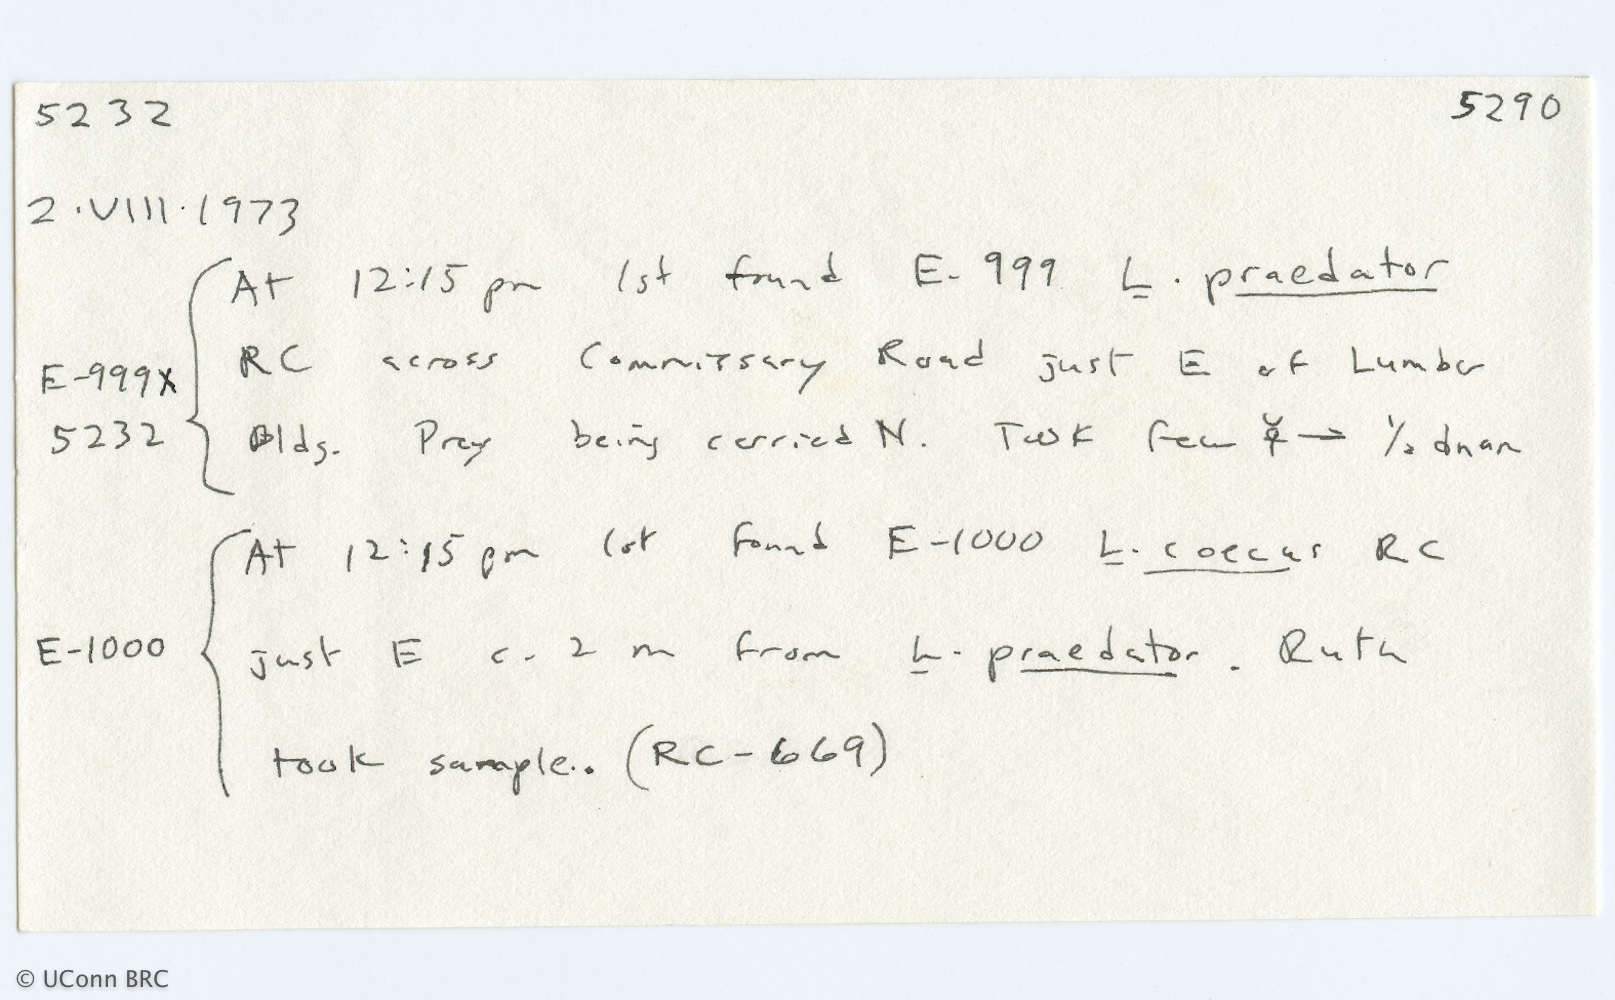 5232 5290
2.VIII.1973
At 12:15 pm 1st found E-999 L. praedator
RC across Commissary Road just E of Lumber
E-999X
5232 Bldg. Prey being carried N. Took few ☿ → 1/2 dram
At 12:15 pm 1st found E-1000 L. coecus RC
E-1000 just E c. 2 m from L. praedator. Ruth
took sample.. (RC-669)
© UConn BRC